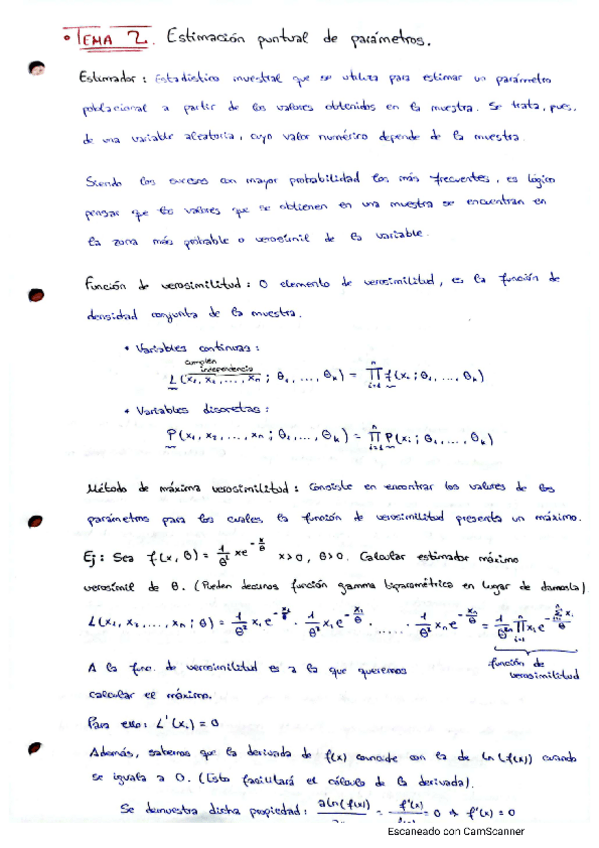 • TEMA 2. Estimación puntual de parámetros.
Estimador: Estadístico muestral que se utiliza para estimar un parámetro
poblacional a partir de los valores obtenidos en la muestra. Se trata, pues,
de una variable aleatoria, cuyo valor numérico depende de la muestra.
Siendo los sucesos con mayor probabilidad los más frecuentes, es lógico
pensar que los valores que se obtienen en una muestra se encuentran en
la zona más probable o verosímil de la variable.
Función de verosimilitud: O elemento de verosimilitud, es la función de
densidad conjunta de la muestra.
• Variables continuas:
cumplen
independencia
L(x₁, x₂, ..., xₙ; θ₁, ..., θₖ) = ∏ᵢ₌₁ⁿ f(xᵢ; θ₁, ..., θₖ)
• Variables discretas:
P(x₁, x₂, ..., xₙ; θ₁, ..., θₖ) = ∏ᵢ₌₁ⁿ P(xᵢ; θ₁, ..., θₖ)
Método de máxima verosimilitud: Consiste en encontrar los valores de los
parámetros para los cuales la función de verosimilitud presenta un máximo.
Ej: Sea f(x, θ) = 1/θ² x e^(-x/θ) x>0, θ>0. Calcular estimador máximo
verosímil de θ. (Pueden decirnos función gamma biparamétrica en lugar de darnosla)
L(x₁, x₂, ..., xₙ; θ) = 1/θ² x₁ e^(-x₁/θ) · 1/θ² x₂ e^(-x₂/θ) · ..... · 1/θ² xₙ e^(-xₙ/θ) = 1/θ²ⁿ ∏ᵢ₌₁ⁿ xᵢ e^(-∑ᵢ₌₁ⁿ xᵢ/θ)
función de
verosimilitud
A la func. de verosimilitud es a la que queremos
calcular el máximo.
Para ello: L'(xᵢ) = 0
Además, sabemos que la derivada de f(x) coincide con la de ln(f(x)) cuando
se iguala a 0. (Esto facilitará el cálculo de la derivada).
Se demuestra dicha propiedad: ∂ln(f(x)) = f'(x) = 0 → f'(x) = 0
Escaneado con CamScanner